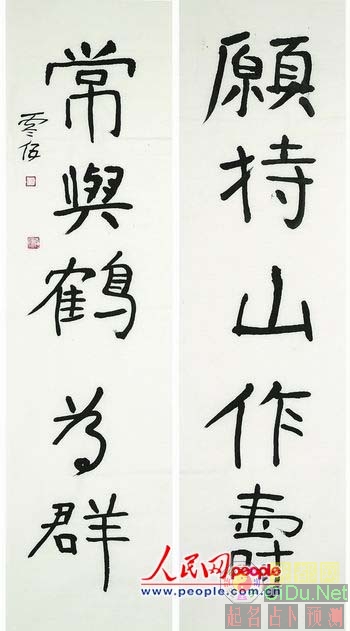 願持山作壽
常與鶴為群
人民网
people
www.people.com.cn
起名占卜预测